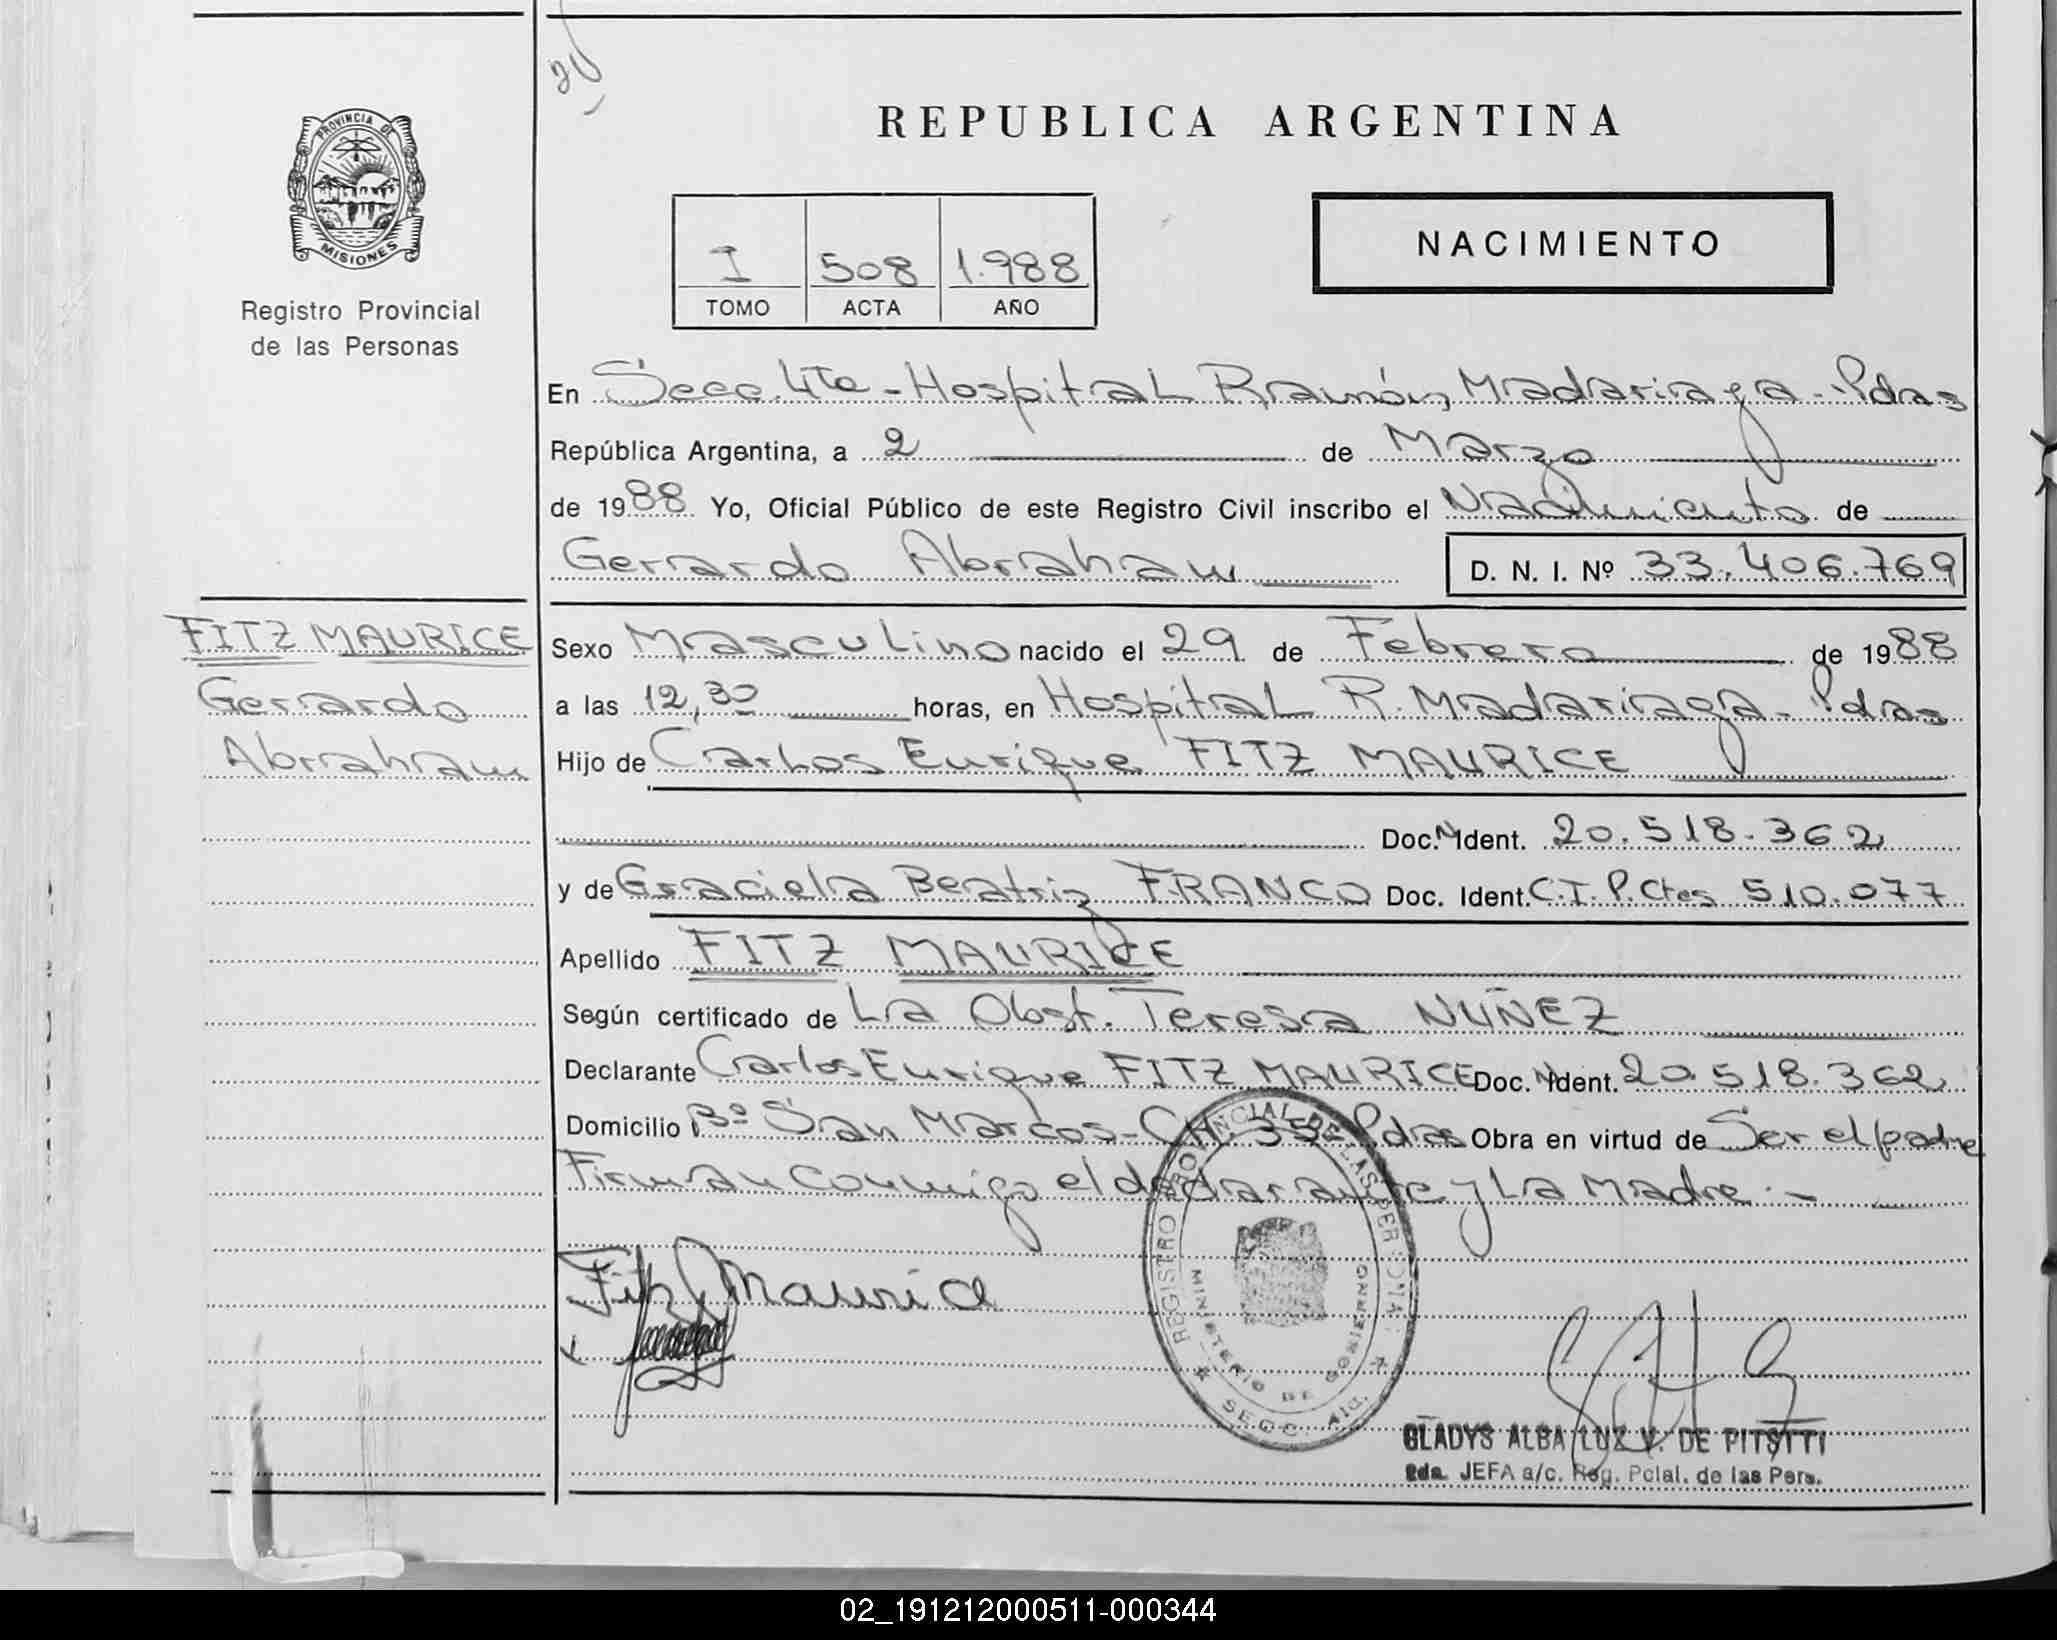 PROVINCIA DE
MISIONES
Registro Provincial
de las Personas
FITZ MAURICE
Gerardo
Abraham
REPUBLICA ARGENTINA
I 508 1.988
TOMO ACTA AÑO
NACIMIENTO
En Secc. 4ta - Hospital Ramón Madariaga - Pdas
República Argentina, a 2 de Marzo
de 1988 Yo, Oficial Público de este Registro Civil inscribo el Nacimiento de
Gerardo Abraham D. N. I. Nº 33.406.769
Sexo Masculino nacido el 29 de Febrero de 1988
a las 12,30 horas, en Hospital R. Madariaga - Pdas
Hijo de Carlos Enrique FITZ MAURICE
Doc. N Ident. 20.518.362
y de Graciela Beatriz FRANCO Doc. Ident. C.I.P.Ctes 510.077
Apellido FITZ MAURICE
Según certificado de La Obst. Teresa NUÑEZ
Declarante Carlos Enrique FITZ MAURICE Doc. N Ident. 20.518.362
Domicilio Bº San Marcos - CH. 35 - Pdas Obra en virtud de Ser el padre
Firman conmigo el declarante y La Madre. -
Fitz Maurice
REGISTRO PROVINCIAL DE LAS PERSONAS
MINISTERIO DE GOBIERNO
SECC. 4ta.
GLADYS ALBA LUZ V. DE PITSTTI
2da. JEFA a/c. Reg. Pcial. de las Pers.
02_191212000511-000344